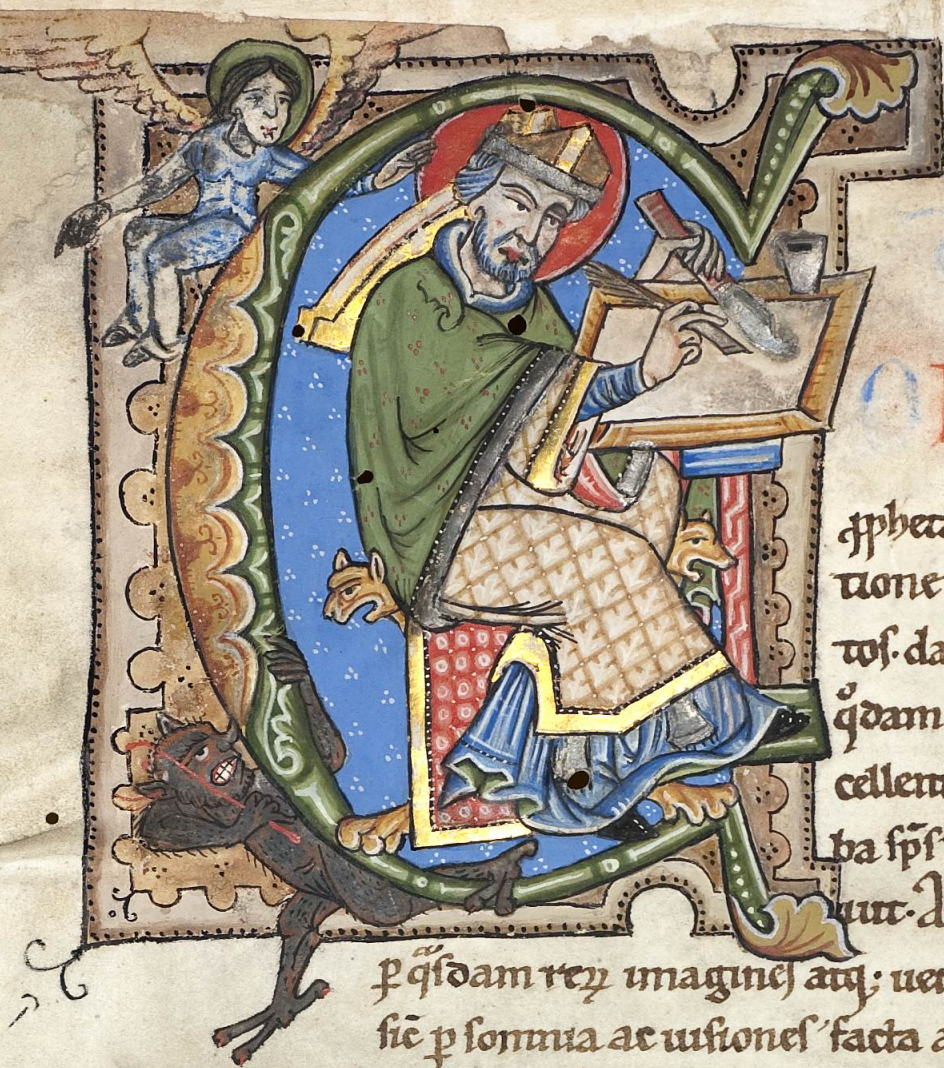 ꝓphet
tione
tos. da
qͦdam
cellent
ba sp̄s
uit. A
ꝑ qͣsdam reꝝ imagines atq; ue
sic̄ ꝑ somnia ac uisiones facta a